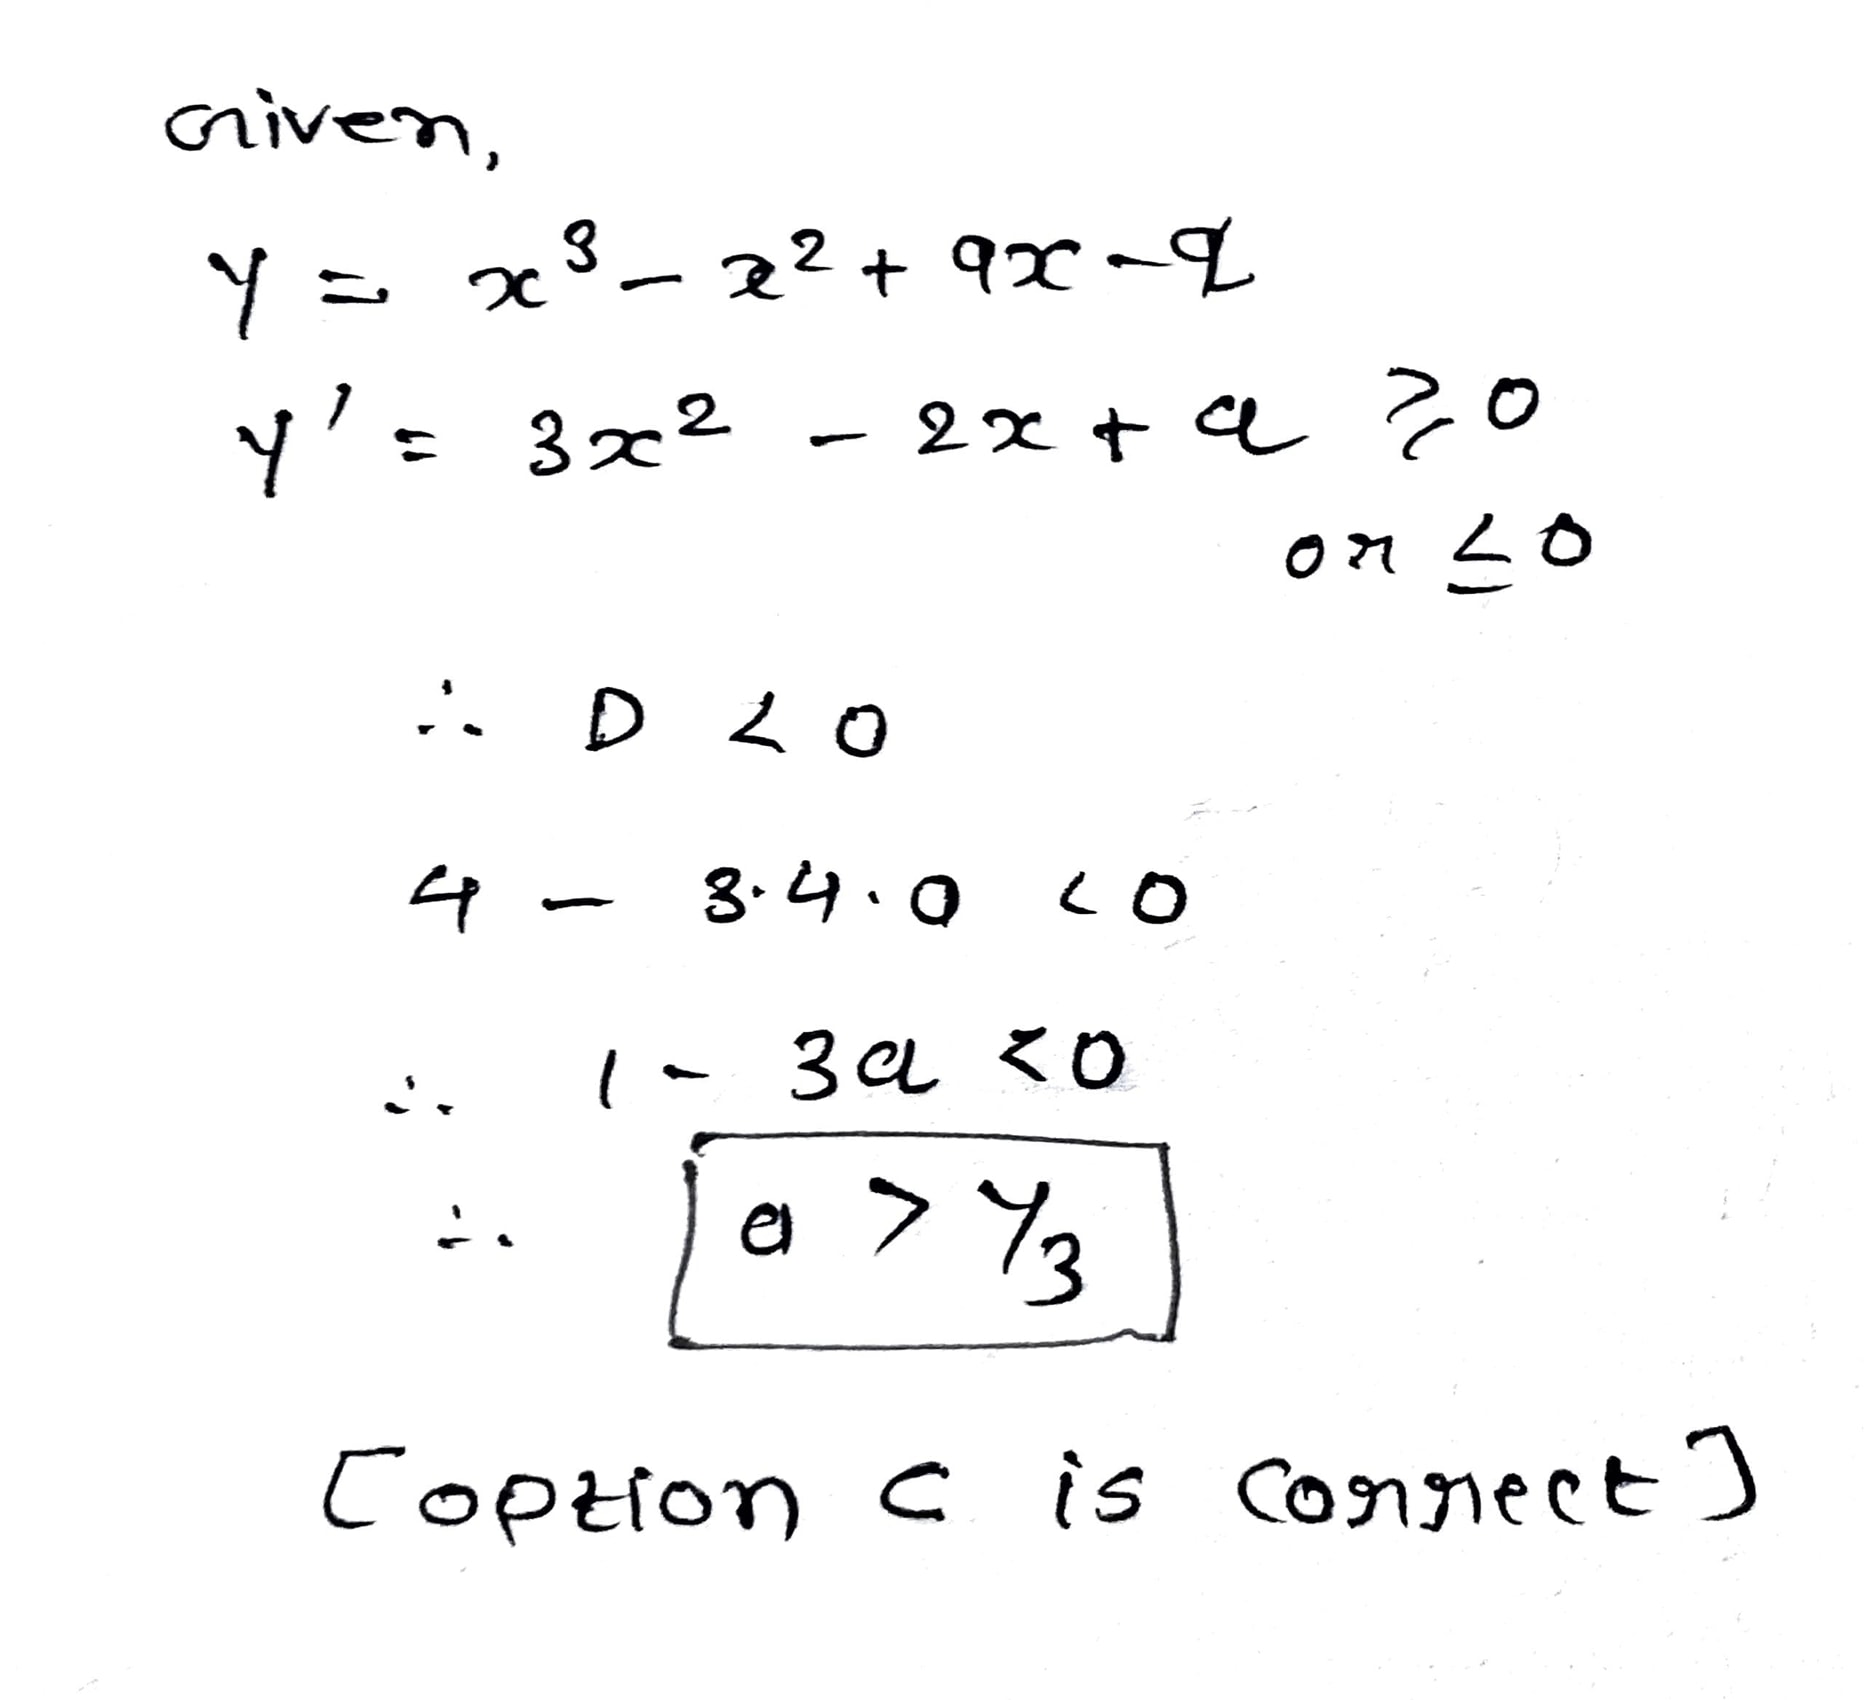 Given,
y = x³ - x² + ax - 9
y' = 3x² - 2x + a ≥ 0
or ≤ 0
∴ D < 0
4 - 3·4·a < 0
∴ 1 - 3a < 0
∴ a > 1/3
[option C is correct]